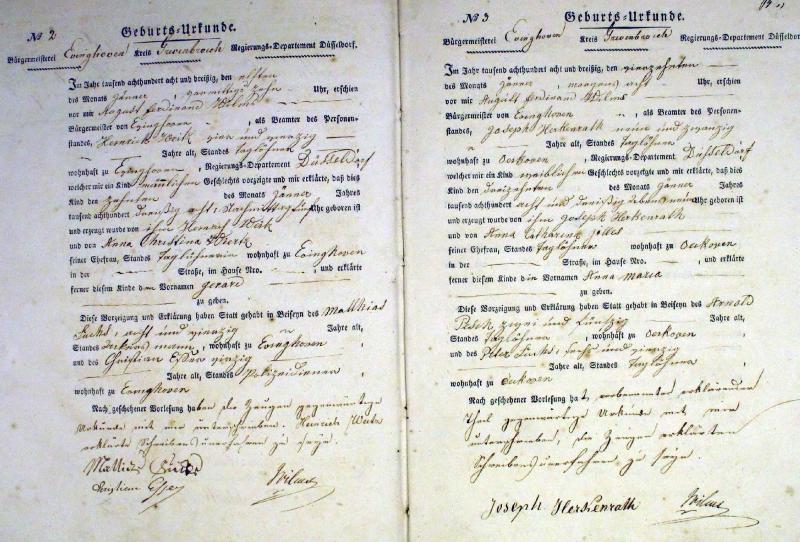 No 2 Geburts-Urkunde.
Bürgermeisterei Evinghoven Kreis Grevenbroich Regierungs-Departement Düsseldorf.
Im Jahr tausend achthundert acht und dreißig, den elften
des Monats Jänner, vormittags zehn Uhr, erschien
vor mir August Ferdinand Wilms
Bürgermeister von Evinghoven, als Beamter des Personen-
standes, Heinrich Weik vier und vierzig
Jahre alt, Standes Taglöhner
wohnhaft zu Evinghoven, Regierungs-Departement Düsseldorf
welcher mir ein Kind männlichen Geschlechts vorzeigte und mir erklärte, daß dies
Kind den zehnten des Monats Jänner Jahres
tausend achthundert dreißig acht, Nachmittags fünf Uhr geboren ist
und erzeugt wurde von ihm Heinrich Weik
und von Anna Christina
seiner Ehefrau, Standes Taglöhnerin wohnhaft zu Evinghoven
in der Straße, im Hause Nro. , und erklärte
ferner diesem Kinde den Vornamen Gerard
zu geben.
Diese Vorzeigung und Erklärung haben Statt gehabt in Beiseyn des Matthias
acht und vierzig Jahre alt,
Standes Ackersmann, wohnhaft zu Evinghoven
und des Christian Esser vierzig
Jahre alt, Standes Polizeidiener
wohnhaft zu Evinghoven
Nach geschehener Vorlesung haben die Zeugen gegenwärtige
Urkunde mit mir unterschrieben. Heinrich
erklärte Schreibens unerfahren zu seye.
Wilms
No 3 Geburts-Urkunde.
Bürgermeisterei Evinghoven Kreis Grevenbroich Regierungs-Departement Düsseldorf
Im Jahr tausend achthundert acht und dreißig, den vierzehnten
des Monats Jänner, morgens acht Uhr, erschien
vor mir August Ferdinand Wilms
Bürgermeister von Evinghoven, als Beamter des Personen-
standes, Joseph Herkenrath neun und zwanzig
Jahre alt, Standes Taglöhner
wohnhaft zu Oeckoven, Regierungs-Departement Düsseldorf,
welcher mir ein Kind weiblichen Geschlechts vorzeigte und mir erklärte, daß dies
Kind den dreizehnten des Monats Jänner Jahres
tausend achthundert acht und dreißig Uhr geboren ist
und erzeugt wurde von ihm Joseph Herkenrath
und von Anna Catharina
seiner Ehefrau, Standes Taglöhner wohnhaft zu Oeckoven
in der Straße, im Hause Nro. , und erklärte
ferner diesem Kinde den Vornamen Anna Maria
zu geben.
Diese Vorzeigung und Erklärung haben Statt gehabt in Beiseyn des Arnold
zwei und fünfzig Jahre alt,
Standes Taglöhner, wohnhaft zu Oeckoven
und des Peter sechs und vierzig
Jahre alt, Standes Taglöhner
wohnhaft zu Oeckoven
Nach geschehener Vorlesung hat, vorbenannter erklärender
Theil gegenwärtige Urkunde mit mir
unterschrieben, die Zeugen erklärten
Schreibens unerfahren zu seye.
Joseph Herkenrath Wilms